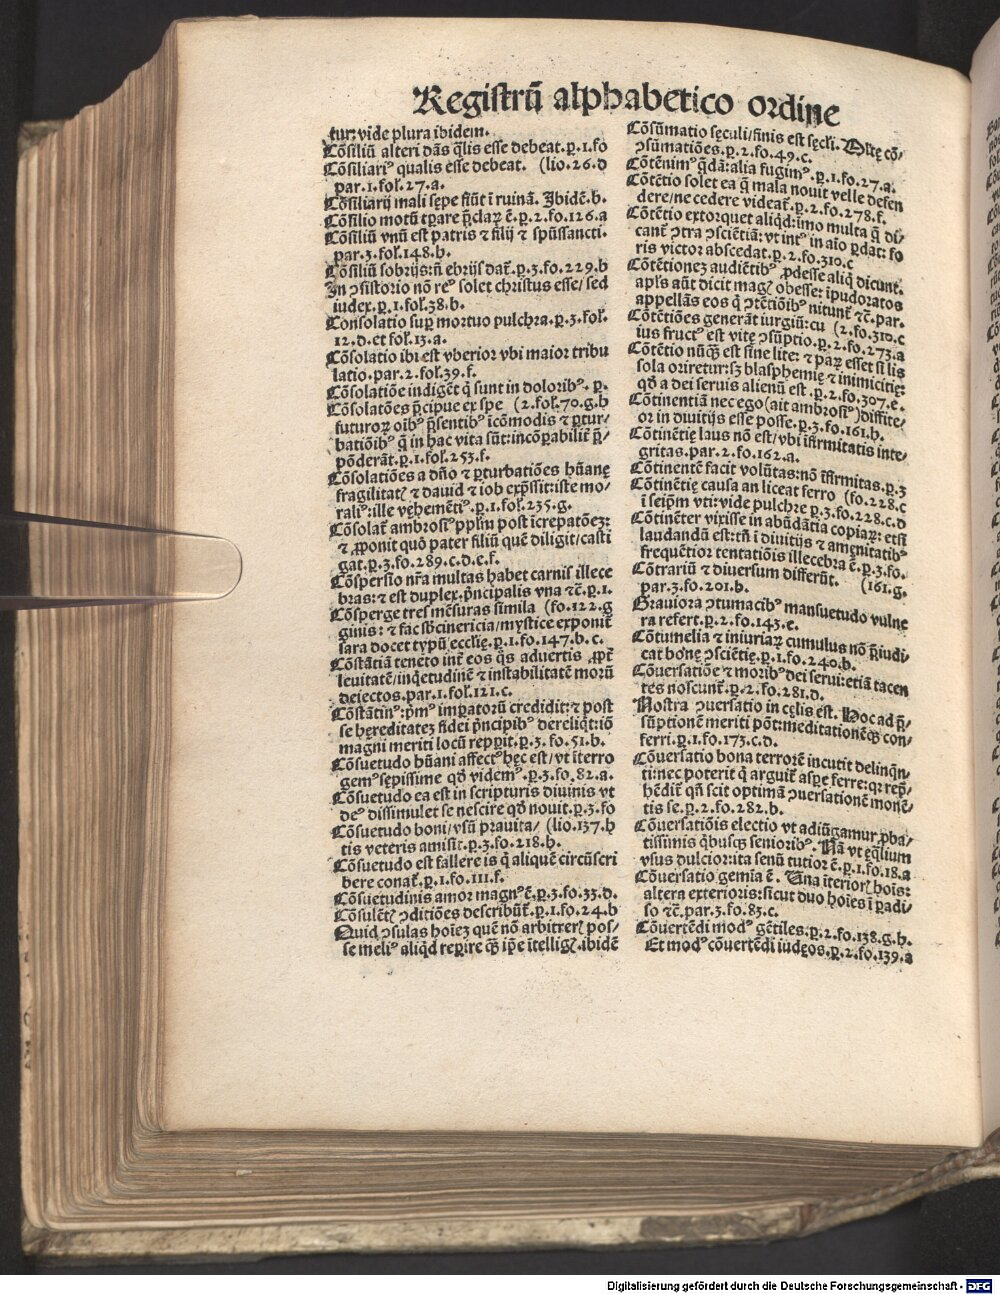 Registrũ alphabetico ordine
tur: vide plura ibidem.
Cõsiliũ alteri dãs q̃lis esse debeat. p. 1. fo
Cõsiliariꝰ qualis esse debeat. (lio. 26. d
par. 1. fol. 27. a.
Cõsiliarij mali sępe fiũt ĩ ruinã. Ibidẽ. b.
Cõsilio motũ tꝑare p̃claꝝ ẽ. p. 2. fo. 126. a
Cõsiliũ vnũ est patris ⁊ filij ⁊ spũssancti.
par. 3. fol. 148. b.
Cõsiliũ sobrijs: ñ ebrijs dat̃. p. 3. fo. 229. b
In ↄsistorio nõ reꝰ solet christus esse/ sed
iudex. p. 1. fol. 38. b.
Consolatio suꝑ mortuo pulchra. p. 3. fol.
12. d. et fol. 13. a.
Cõsolatio ibi est vberior vbi maior tribu
latio. par. 2. fol. 39. f.
Cõsolatiõe indigẽt q̃ sunt in doloribꝰ. p.
Cõsolatões p̃cipue ex spe (2. fol. 70. g. h
futuroꝝ oĩbꝰ p̃sentibꝰ ĩcõmodis ⁊ ꝑtur-
batiõibꝰ q̃ in hac vita sũt: incõꝑabilit̃ p̃-
põderãt. p. 1. fol. 253. f.
Cõsolatiões a dño ⁊ ꝑturbatiões hũanę
fragilitatꝭ ⁊ dauid ⁊ iob exp̃ssit: iste mo-
raliꝰ: ille vehemẽtiꝰ. p. 1. fol. 235. g.
Cõsolat̃ ambrosiꝰ ppl̃m post ĩcrepatõeꝫ:
⁊ ꝓponit quõ pater filiũ quẽ diligit/ casti
gat. p. 3. fo. 289. c. d. e. f.
Cõspersio nr̃a multas habet carnis illece
bras: ⁊ est duplex. p̃ncipalis vna ⁊c̃. p. 1.
Cõsperge tres mẽsuras simila (fo. 122. g
ginis: ⁊ fac sb̃cinericia/ mystice exponit̃
sara docet typũ ecclię. p. 1. fo. 147. b. c.
Cõstãtiã teneto int̃ eos q̃s aduertis ꝓpt̃
leuitatẽ/ inq̃etudinẽ ⁊ instabilitatẽ morũ
deiectos. par. 1. fol. 121. c.
Cõstãtinꝰ: p̃mꝰ imꝑatorũ credidit: ⁊ post
se hęreditateꝫ fidei p̃ncipibꝰ dereliq̃t: iõ
magni meriti locũ reꝑit. p. 3. fo. 51. b.
Cõsuetudo hũani affectꝰ hęc est/ vt ĩterro
gemꝰ sępissime qđ videmꝰ. p. 3. fo. 82. a.
Cõsuetudo ea est in scripturis diuinis vt
deꝰ dissimulet se nescire qđ nouit. p. 3. fo
Cõsuetudo boni/ vsũ prauita/ (lio. 137. h
tis veteris amisit. p. 3. fo. 218. h.
Cõsuetudo est fallere is q̃ aliquẽ circũscri
bere conat̃. p. 1. fo. 111. f.
Cõsuetudinis amor magnꝰ ẽ. p. 3. fo. 33. d.
Cõsulẽtꝭ ↄditiões describũt̃. p. 1. fo. 24. b
Quid ↄsulas hoĩeꝫ quẽ nõ arbitrerꝭ pos-
se meliꝰ aliq̃d reꝑire q̃ꝫ ip̃e ĩtelligꝭ. ibidẽ
Cõsũmatio sęculi/ finis est sęcli. Dicte cõ/
ↄsũmatiões. p. 2. fo. 49. c.
Cõtẽnimꝰ q̃dã: alia fugimꝰ. p. 1. fo. 27. a.
Cõtẽtio solet ea q̃ mala nouit velle defen
dere/ ne cedere videat̃. p. 2. fo. 278. f.
Cõtẽtio extorquet aliq̃d: ĩmo multa q̃ di/
cant̃ ↄtra ↄsciẽtiã: vt intꝰ in aĩo ꝑdat: fo
ris victor abscedat. p. 2. fo. 310. c
Cõtẽtioneꝫ audiẽtibꝰ ꝓdesse aliq̃ dicunt.
apl̃s aũt dicit magꝭ obesse: ĩpudoratos
appellãs eos q̃ ↄtẽtiõibꝰ nitunt̃ ⁊c̃. par.
Cõtẽtiões generãt iurgiũ: cu (2. fo. 310. c
ius fructꝰ est vitę ↄsũptio. p. 2. fo. 273. a
Cõtẽtio nũq̃ꝫ est sine lite: ⁊ paꝝ esset si lis
sola oriretur: sꝫ blasphemię ⁊ inimicitię:
qđ a dei seruis alienũ est. p. 2. fo. 307. e.
Cõtinentiã nec ego (ait ambrosiꝰ) diffite/
or in diuitijs esse posse. p. 3. fo. 161. h.
Cõtinẽtię laus nõ est/ vbi ĩfirmitatis inte/
gritas. par. 2. fo. 162. a.
Cõtinentẽ facit volũtas: nõ ĩfirmitas. p. 3
Cõtinẽtię causa an liceat ferro (fo. 228. c
ĩ seip̃m vti: vide pulchre p. 3. fo. 228. c. d
Cõtinẽter vixisse in abũdãtia copiaꝝ: etsi
laudandũ est: tñ ĩ diuitijs ⁊ amęnitatibꝰ
frequẽtior tentatiõis illecebra ẽ. p. 3. fo.
Cõtrariũ ⁊ diuersum differũt. (161. g.
par. 3. fo. 201. b.
Grauiora ↄtumacibꝰ mansuetudo vulne
ra refert. p. 2. fo. 143. e.
Cõtumelia ⁊ iniuriaꝝ cumulus nõ p̃iudi/
cat bonę ↄsciẽtię. p. 1. fo. 240. b.
Cõuersatiõe ⁊ moribꝰ dei serui: etiã tacen
tes noscunt̃. p. 2. fo. 281. d.
Nostra ↄuersatio in cęlis est. Hoc ad p̃/
sũptionẽ meriti põt: meditationẽqꝫ con/
ferri. p. 1. fo. 173. c. d.
Cõuersatio bona terrorẽ incutit delinq̃n/
ti: nec poterit q̃ arguit̃ aspe ferre: qꝛ rep̃/
hẽdit̃ qñ scit optimã ↄuersationẽ monẽ/
tis se. p. 2. fo. 282. b.
Cõuersatiõis electio vt adiũgamur ꝓba/
tissimis q̃busqꝫ senioribꝰ. Nã vt ęq̃lium
vsus dulcior: ita senũ tutior ẽ. p. 1. fo. 18. a
Cõuersatio gemia ẽ. Una ĩteriorꝭ hoĩs:
altera exterioris: sicut duo hoĩes ĩ ꝑadi/
so ⁊c̃. par. 3. fo. 83. c.
Cõuertẽdi modꝰ gẽtiles. p. 2. fo. 138. g. h.
Et modꝰ cõuertẽdi iudęos. p. 2. fo. 139. a
Digitalisierung gefördert durch die Deutsche Forschungsgemeinschaft - DFG